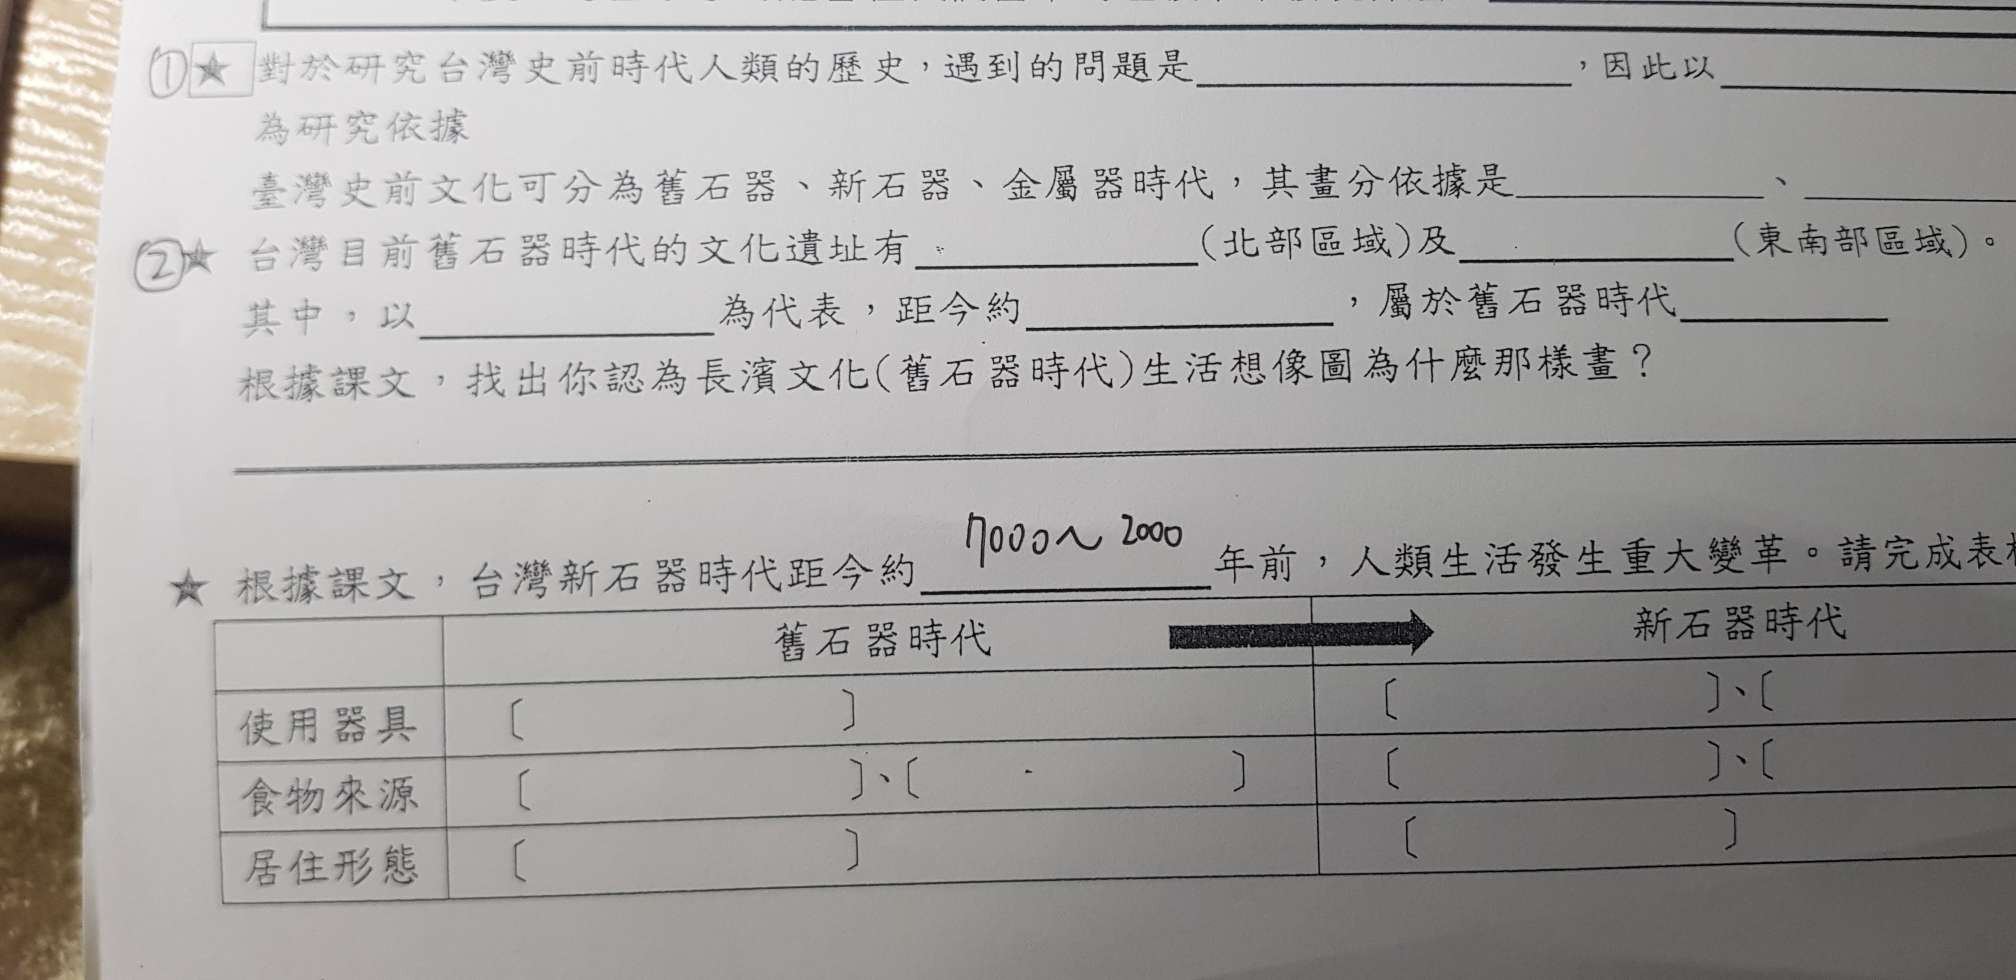 ①★ 對於研究台灣史前時代人類的歷史，遇到的問題是＿＿＿＿，因此以＿＿＿＿
為研究依據
臺灣史前文化可分為舊石器、新石器、金屬器時代，其畫分依據是＿＿＿＿、＿＿＿＿
②★ 台灣目前舊石器時代的文化遺址有＿＿＿＿(北部區域)及＿＿＿＿(東南部區域)。
其中，以＿＿＿＿為代表，距今約＿＿＿＿，屬於舊石器時代＿＿＿＿
根據課文，找出你認為長濱文化(舊石器時代)生活想像圖為什麼那樣畫？
★ 根據課文，台灣新石器時代距今約 7000~2000 年前，人類生活發生重大變革。請完成表
舊石器時代 新石器時代
使用器具 〔 〕 〔 〕、〔
食物來源 〔 〕、〔 〕 〔 〕、〔
居住形態 〔 〕 〔 〕